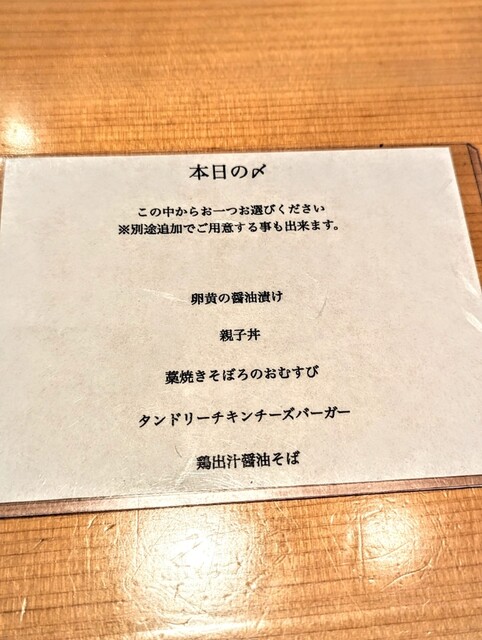 本日の〆
この中からお一つお選びください
※別途追加でご用意する事も出来ます。
卵黄の醤油漬け
親子丼
藁焼きそぼろのおむすび
タンドリーチキンチーズバーガー
鶏出汁醤油そば